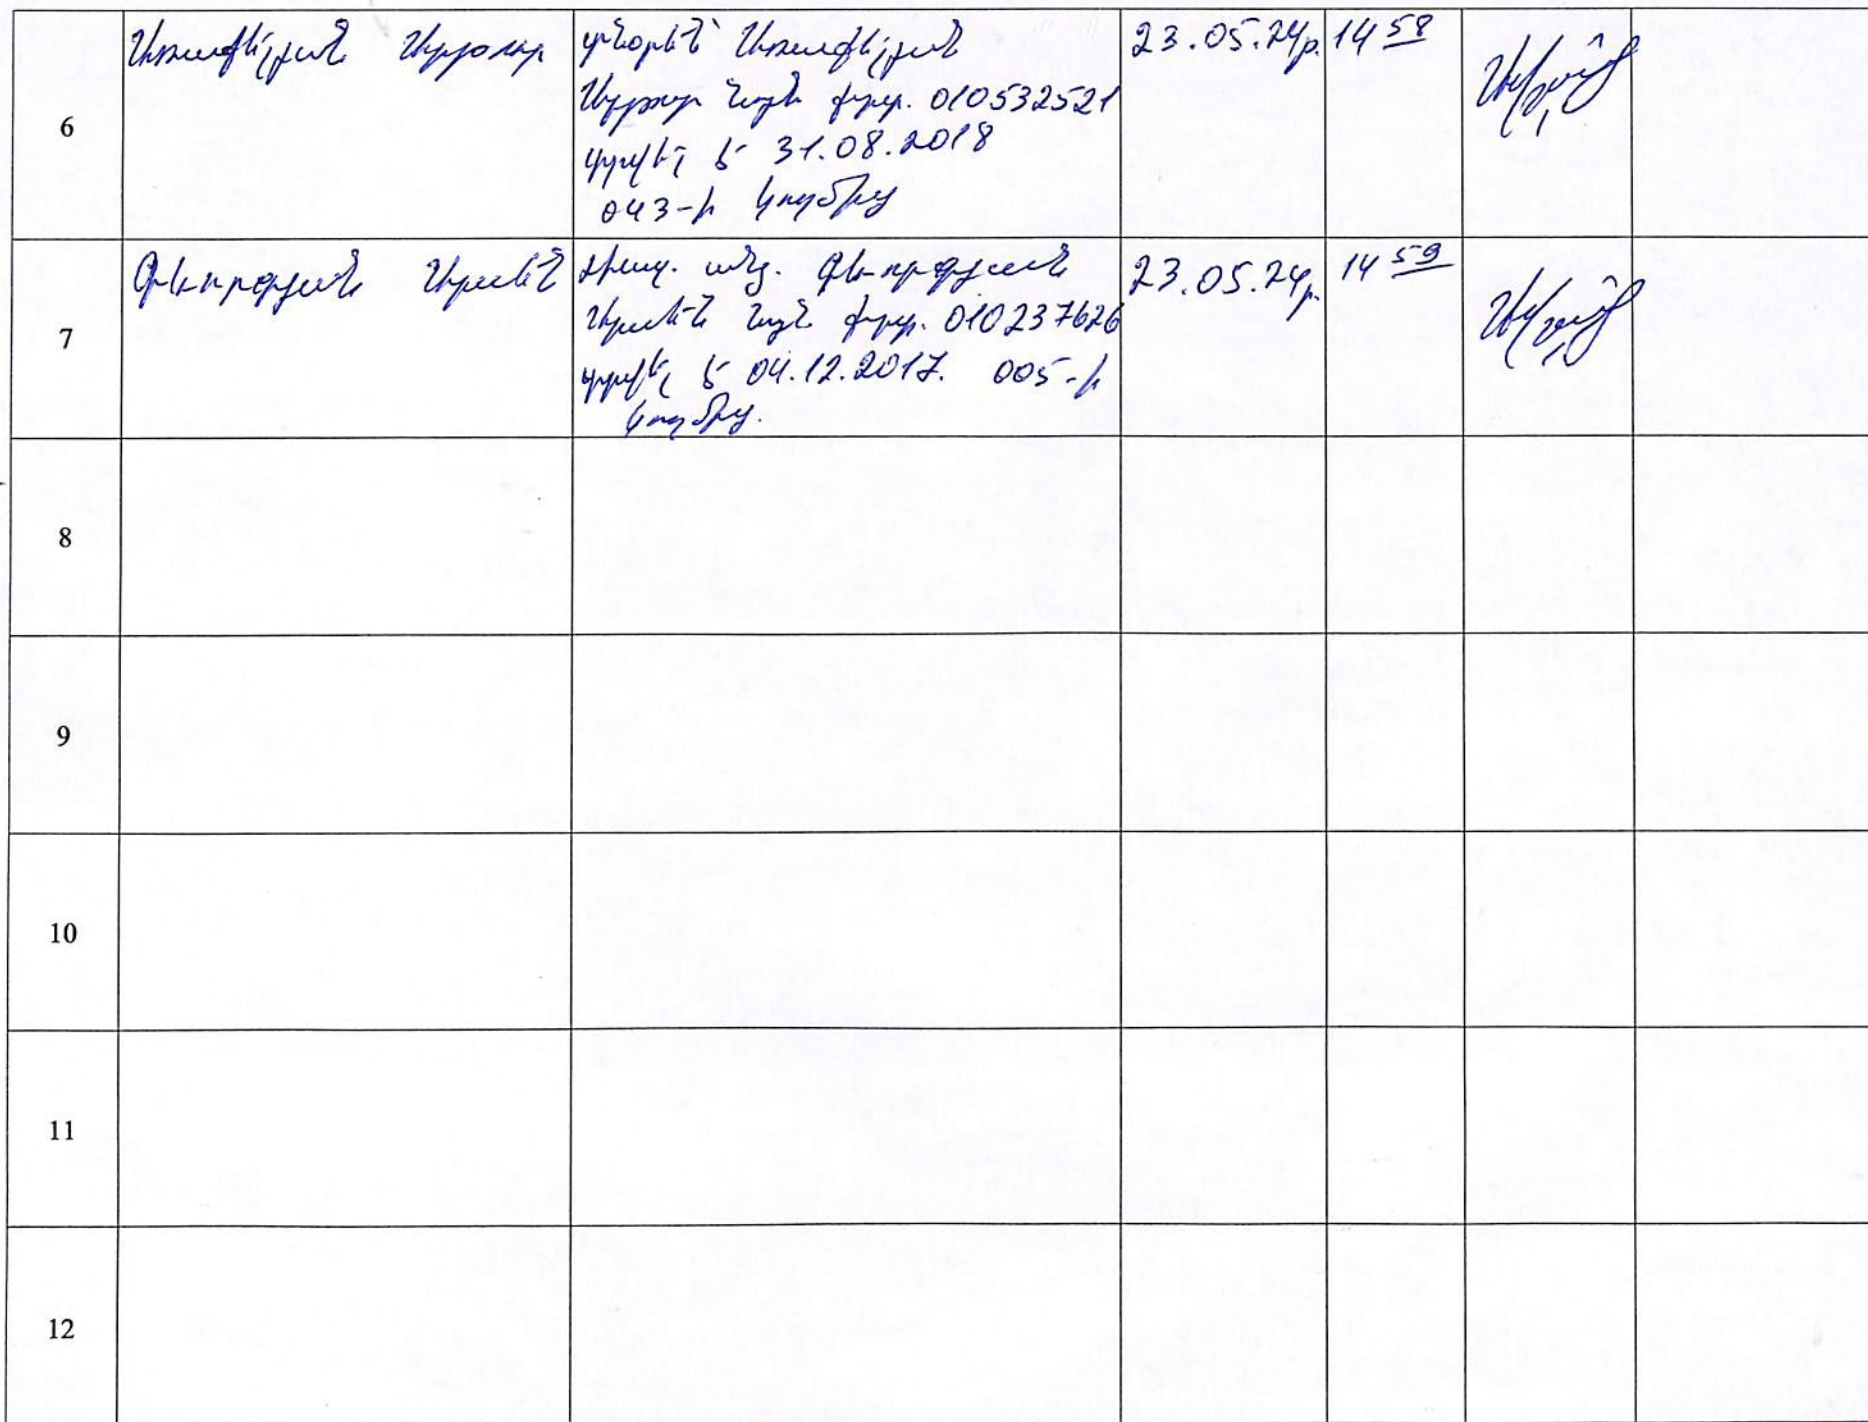 6
Առաքելյան Արթուր
տնօրեն՝ Առաքելյան
Արթուր նույն. քարտ. 010532521
տրվել է 31.08.2018
043-ի կողմից
23.05.24թ.
14 58
7
Գևորգյան Արսեն
լիազ. անձ. Գևորգյան
Արսեն նույն. քարտ. 010237626
տրվել է 04.12.2017. 005-ի
կողմից.
23.05.24թ.
14 59
8
9
10
11
12